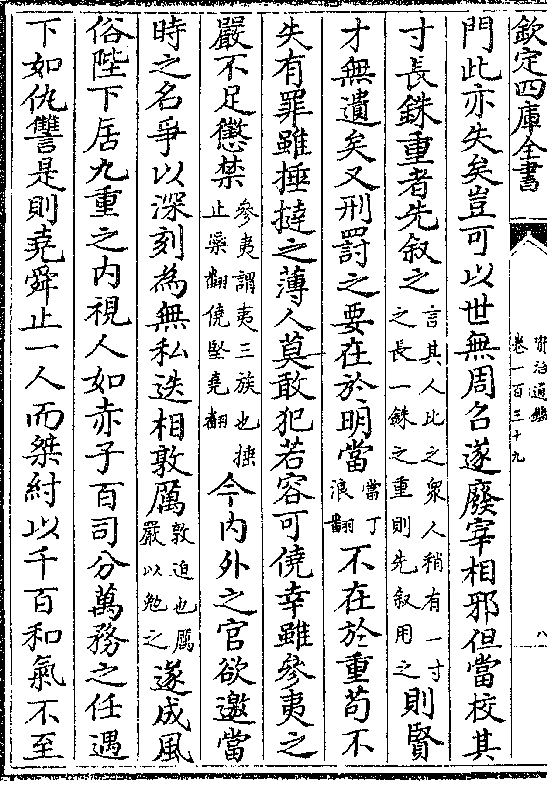 欽定四庫全書
資治通鑑
卷一百三十九
八
門此亦失矣豈可以世無周召遂廢宰相邪但當校其
寸長銖重者先叙之言其人比之衆人稍有一寸之長一銖之重則先叙用之則賢
才無遺矣又刑罰之要在於明當當丁浪翻不在於重苟不
失有罪雖捶撻之薄人莫敢犯若容可僥幸雖參夷之
嚴不足懲禁參夷謂夷三族也捶止橤翻僥堅堯翻今内外之官欲邀當
時之名爭以深刻為無私迭相敦厲敦迫也厲嚴以勉之遂成風
俗陛下居九重之内視人如赤子百司分萬務之任遇
下如仇讐是則堯舜止一人而桀紂以千百和氣不至